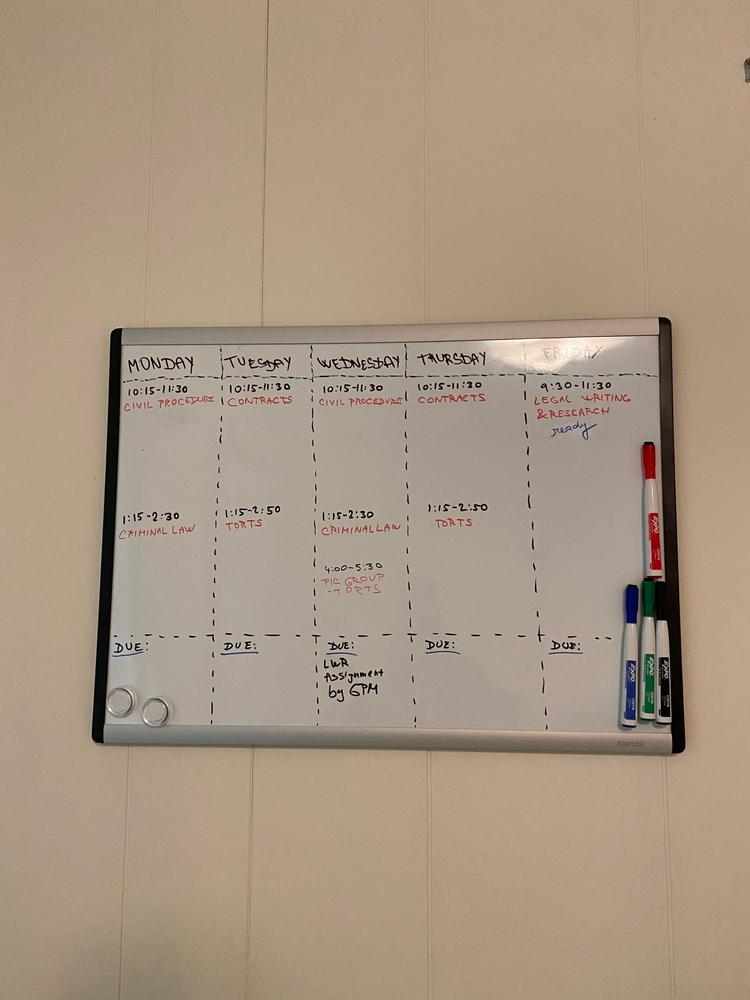 MONDAY
10:15-11:30
CIVIL PROCEDURE
1:15-2:30
CRIMINAL LAW
DUE:
TUESDAY
10:15-11:30
CONTRACTS
1:15-2:50
TORTS
DUE:
WEDNESDAY
10:15-11:30
CIVIL PROCEDURE
1:15-2:30
CRIMINAL LAW
4:00-5:30
PIC GROUP
-TORTS
DUE:
LWR
Assignment
by 6PM
THURSDAY
10:15-11:30
CONTRACTS
1:15-2:50
TORTS
DUE:
FRIDAY
9:30-11:30
LEGAL WRITING
& RESEARCH
ready
DUE:
EXPO
EXPO
EXPO
EXPO
STAPLES